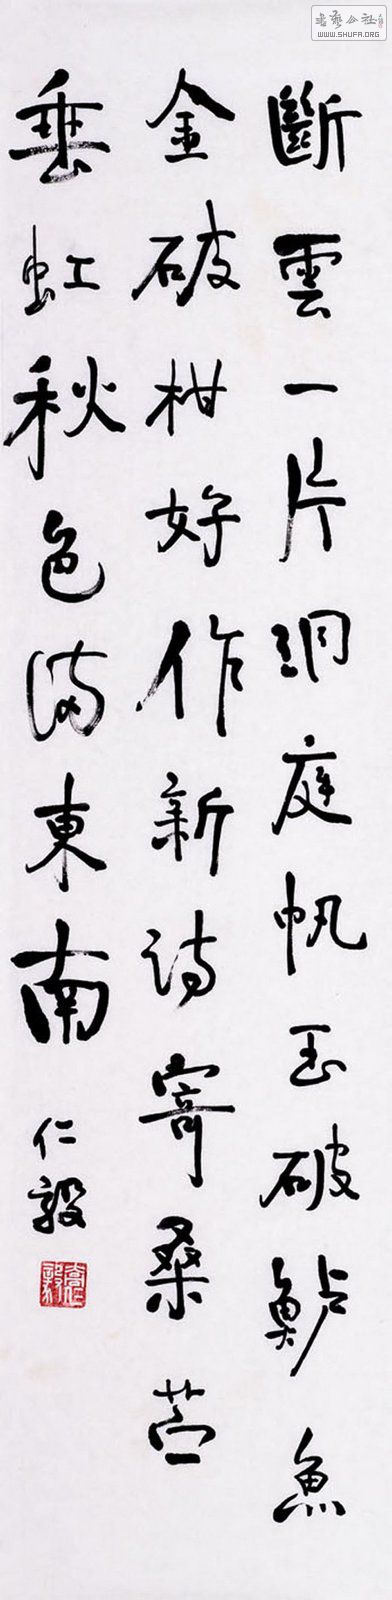 斷雲一片洞庭帆玉破鮎魚
金破柑好作新詩寄桑苎
垂虹秋色滿東南
仁毅
书艺公社
WWW.SHUFA.ORG